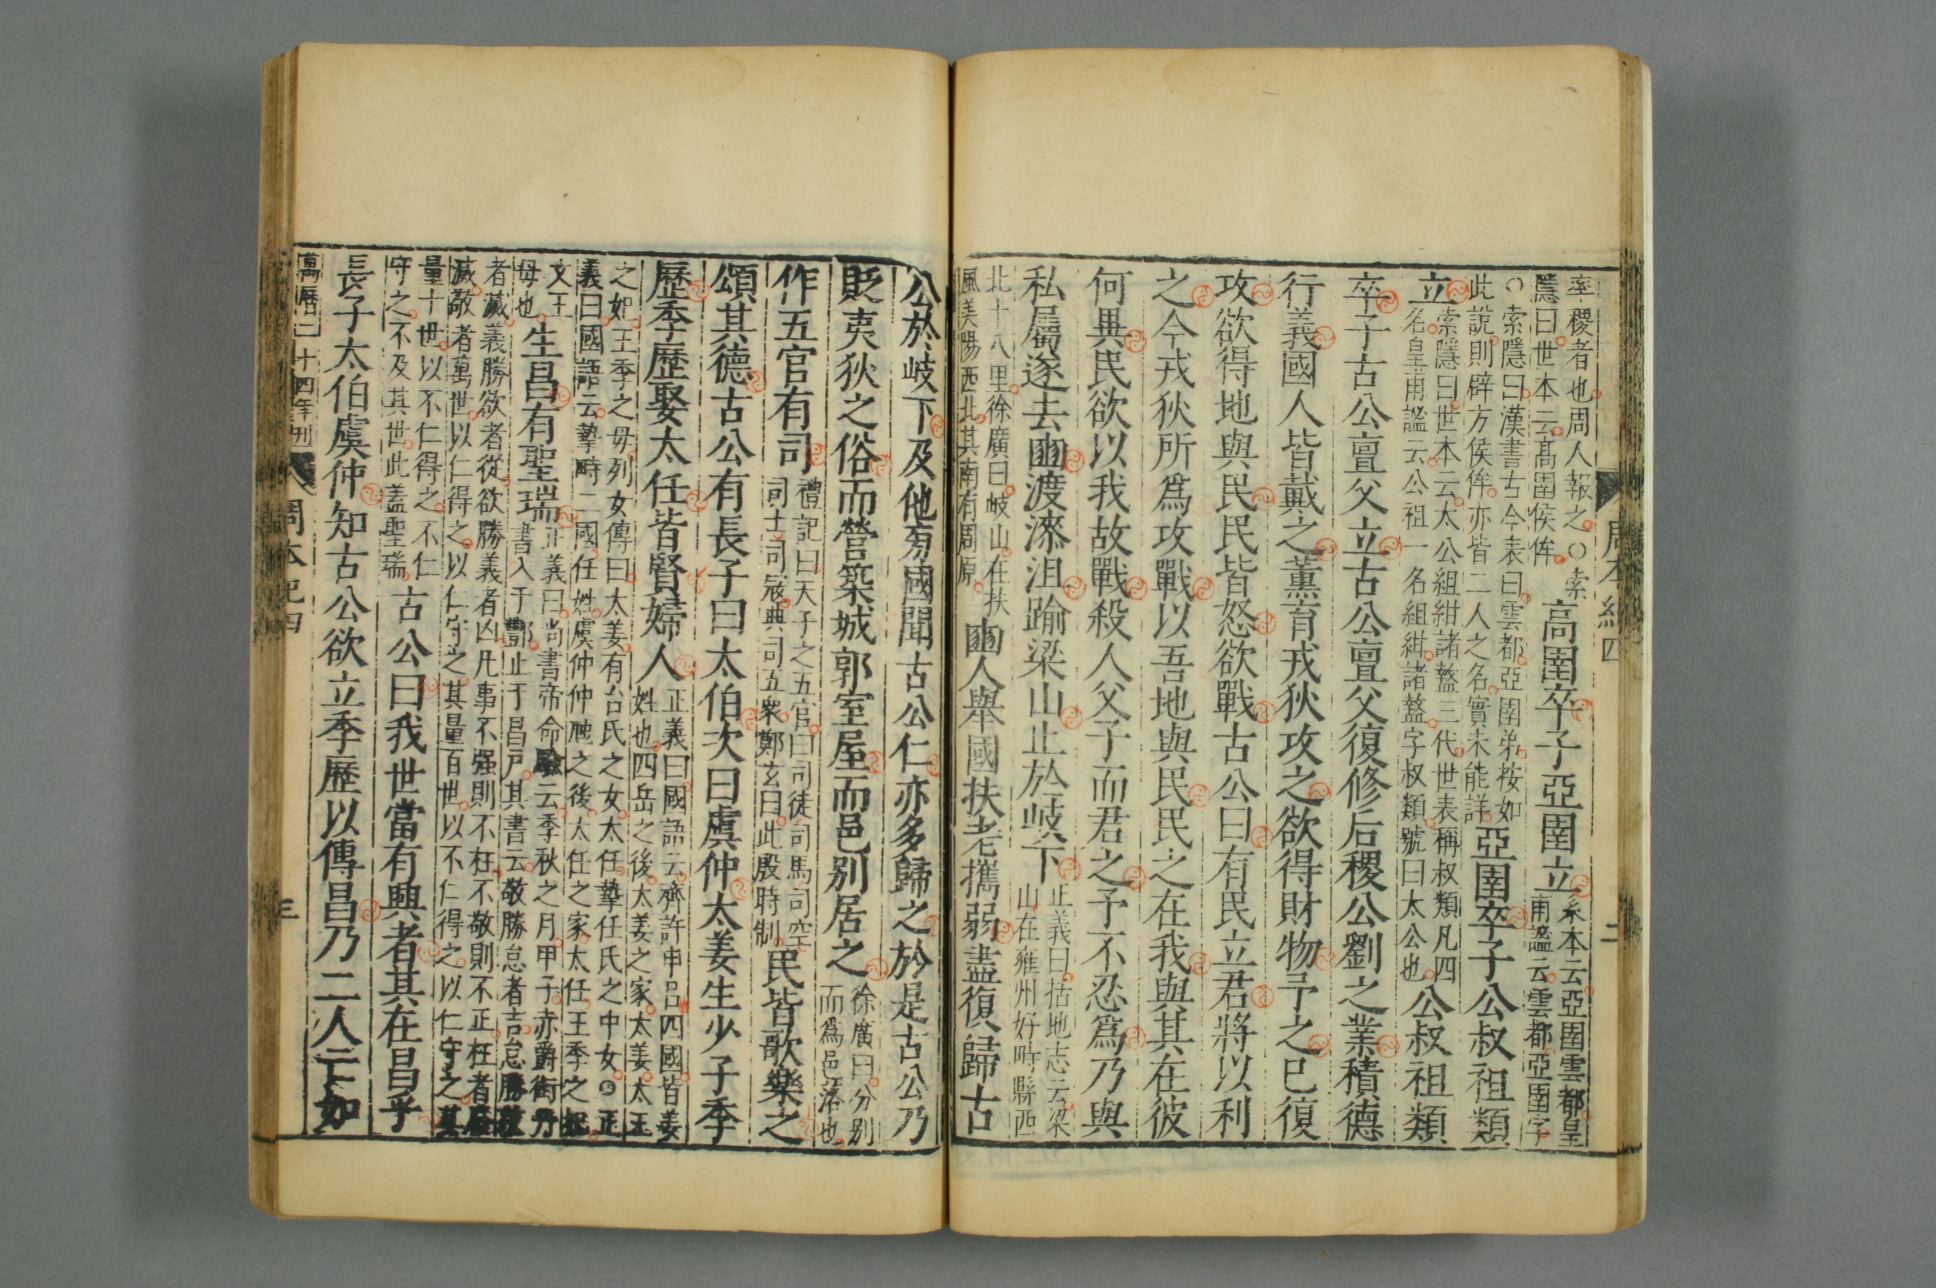 周本紀四
二
率稷者也周人報之○索
隱曰世本云高圉侯侔
高圉卒子亞圉立
系本云亞圉雲都皇
甫謐云雲都亞圉字
○索隱曰漢書古今表曰雲都亞圉弟按如
此說則辟方侯侔亦皆二人之名實未能詳
亞圉卒子公叔祖類
立
索隱曰世本云太公組紺諸盩三代世表稱叔類凡四
名皇甫謐云公祖一名組紺諸盩字叔類號曰太公也
公叔祖類
卒子古公亶父立古公亶父復修后稷公劉之業積德
行義國人皆戴之薰育戎狄攻之欲得財物予之已復
攻欲得地與民民皆怒欲戰古公曰有民立君將以利
之今戎狄所爲攻戰以吾地與民民之在我與其在彼
何異民欲以我故戰殺人父子而君之予不忍爲乃與
私屬遂去豳渡漆沮踰梁山止於岐下
正義曰括地志云梁
山在雍州好畤縣西
北十八里徐廣曰岐山在扶
風美陽西北其南有周原
豳人舉國扶老攜弱盡復歸古
公於岐下及他旁國聞古公仁亦多歸之於是古公乃
貶夷狄之俗而營築城郭室屋而邑別居之
徐廣曰分別
而爲邑落也
作五官有司
禮記曰天子之五官曰司徒司馬司空
司士司冦典司五衆鄭玄曰此殷時制
民皆歌樂之
頌其德古公有長子曰太伯次曰虞仲太姜生少子季
歷季歷娶太任皆賢婦人
正義曰國語云齊許申呂四國皆姜
姓也四岳之後太姜之家太姜太王
之妃王季之母列女傳曰太姜有台氏之女太任摯任氏之中女○正
義曰國語云摯疇二國任姓虞仲仲虺之後太任之家太任王季之妃
文王
母也
生昌有聖瑞
正義曰尚書帝命驗云季秋之月甲子赤爵銜丹
書入于酆止于昌戶其書云敬勝怠者吉怠勝敬
者滅義勝欲者從欲勝義者凶凡事不强則不枉不敬則不正枉者廢
滅敬者萬世以仁得之以仁守之其量百世以不仁得之以仁守之其
量十世以不仁得之不仁
守之不及其世此蓋聖瑞
古公曰我世當有興者其在昌乎
長子太伯虞仲知古公欲立季歷以傳昌乃二人亡如
萬曆二十四年刊
周本紀四
三